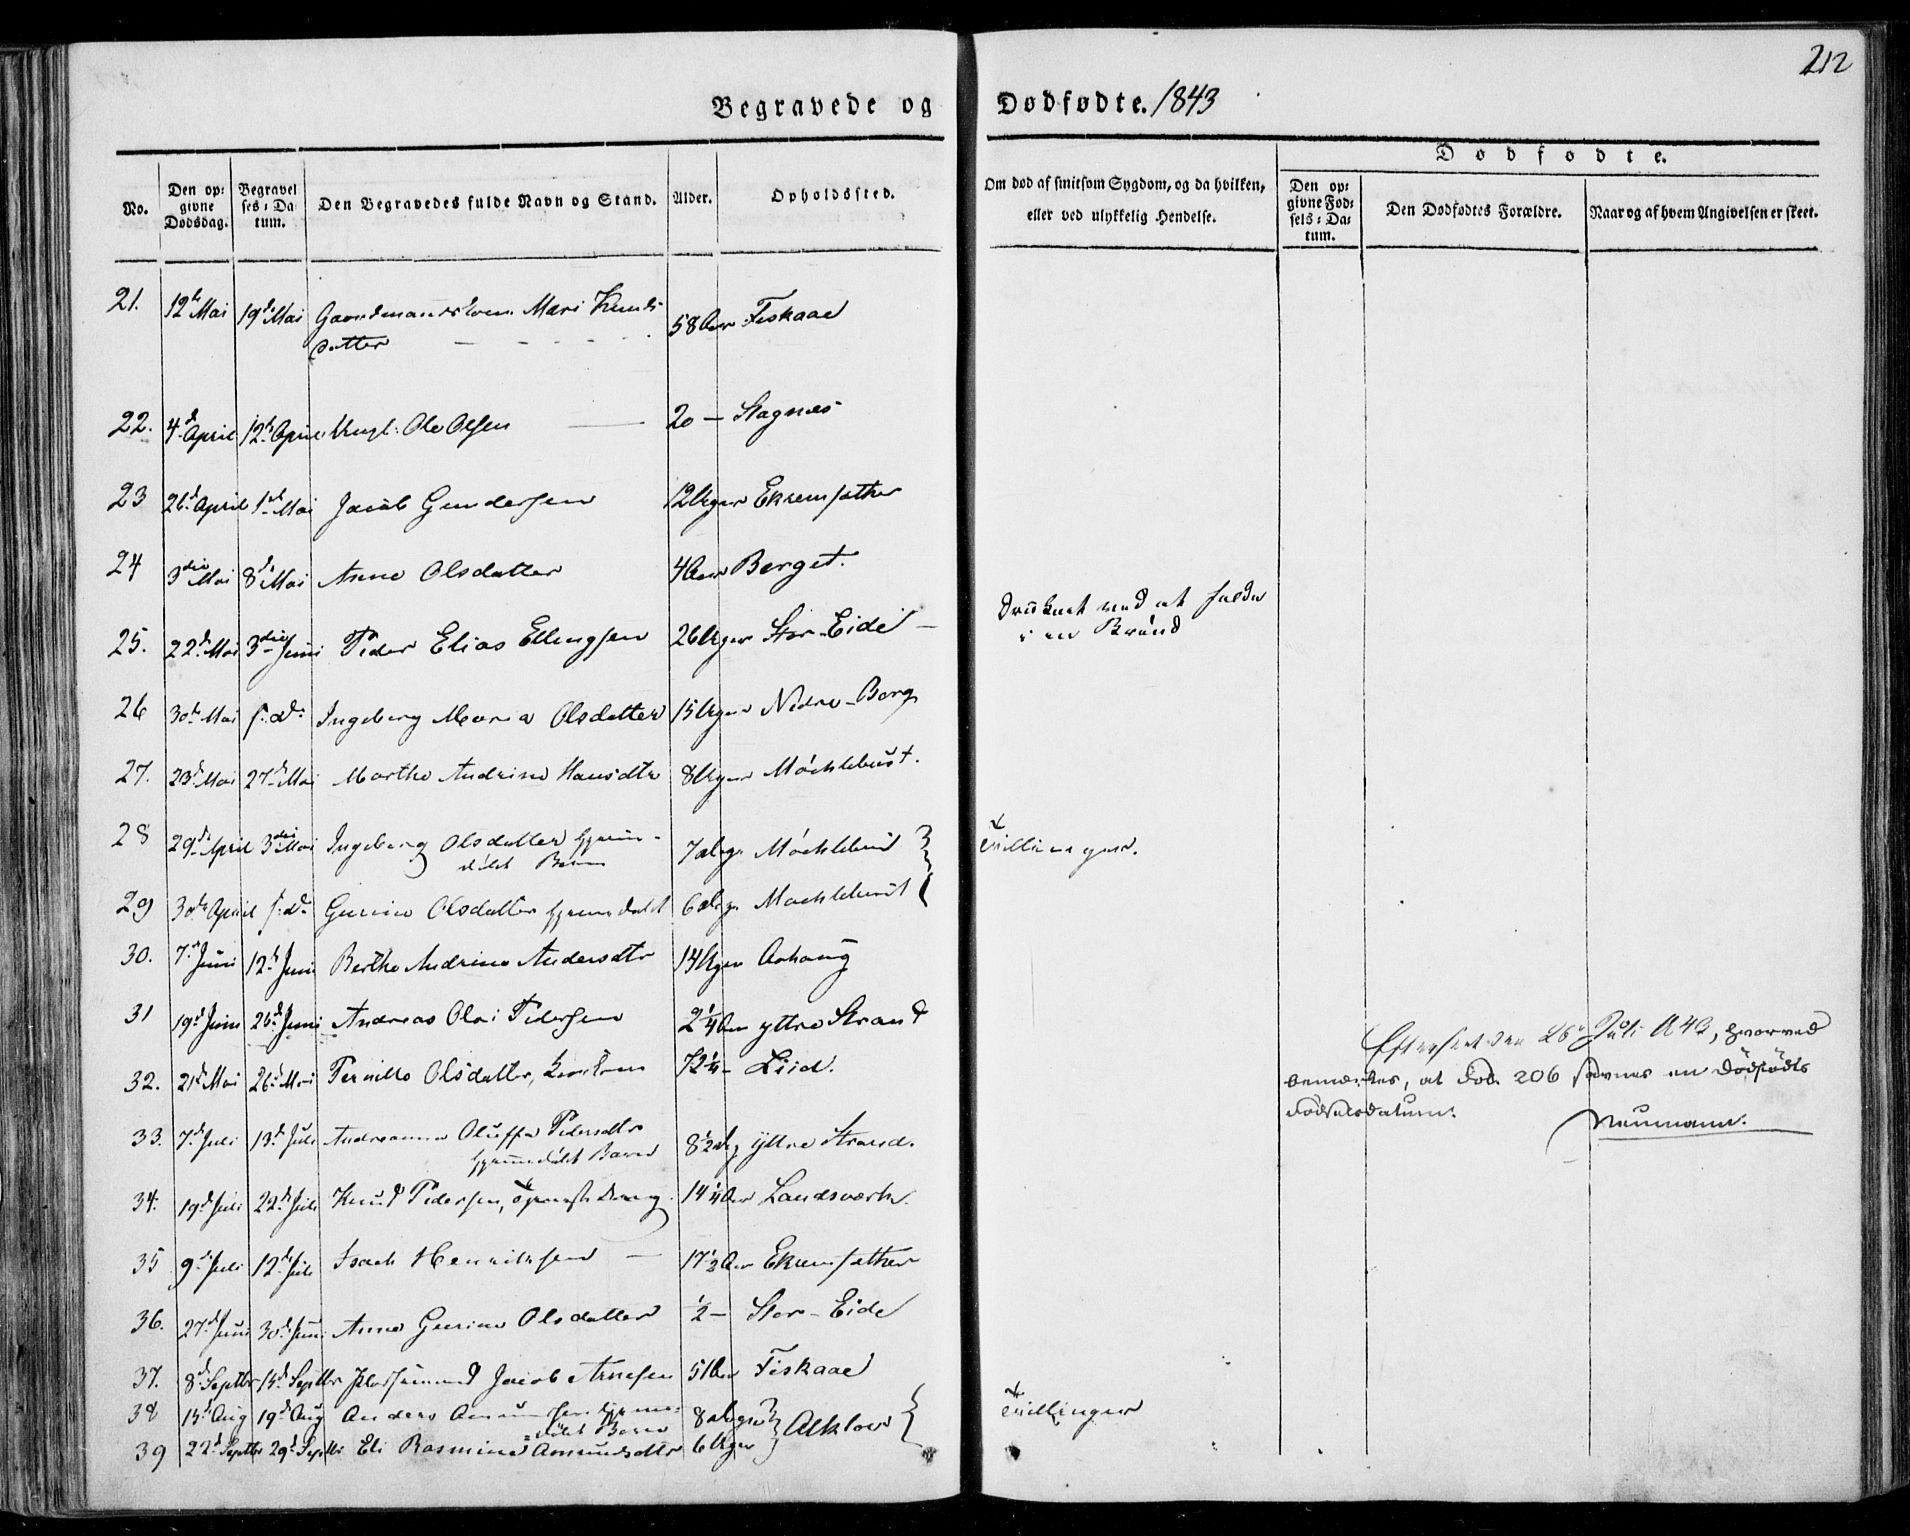 212
Begravede og Dødfødte. 1843
Dødfødte.
No. | Den opgivne Dødsdag. | Begravelses-Datum. | Den Begravedes fulde Navn og Stand. | Alder. | Opholdssted. | Om død af smitsom Sygdom, og da hvilken, eller ved ulykkelig Hendelse. | Den opgivne Fødsels-Datum. | Den Dødfødtes Forældre. | Naar og af hvem Angivelsen er skeet.
21. 12te Mai 19de Mai Gaardmandskone Mari Knuds 58 Aar Fiskaae
datter
22. 4de April 12te April Ungk: Ole Olsen 20 — Stagnæs
23 26de April 1ste Mai Jacob Gundersen 12 Uger Ekremsæther
24 3die Mai 8de Mai Anne Olsdatter 4 Aar Berget.
25. 22de Mai 3die Juni Peder Elias Ellingsen 26 Uger Stor-Eide — Druknet ved at falde
i en Brønd
26 30te Mai s: d: Ingeborg Maria Olsdatter 15 Uger Nedre-Berg
27. 23de Mai 27de Mai Marthe Andrine Hansdtr 8 Uger Møchlebust.
28 29de April 3die Mai Ingeborg Olsdatter hjemme- 7 Uger Møchlebust Tvillinger.
døbt Barn
29 30te April s: d: Gurine Olsdatter hjemmedøbt 6 Møchlebust
30. 7de Juni 12te Juni Berthe Andrine Andersdtr 14 Uger Aahaug
31 19de Juni 26de Juni Andreas Olai Pedersen 2 1/4 Aar yttre Strand
32. 21de Mai 26de Mai Pernille Olsdatter, 72 1/4 – Liid.
Efterseet den 28de Juli 1843, hvorved
bemærkes, at Fol. 206 savnes en Dødfødts
Fødselsdatum.
Neumann.
33. 7de Juli 13de Juli Andreanna Oluffa Pedersdtr 8 1/2 yttre Strand.
hjemmedøbt Barn
34. 19de Juli 22de Juli Knud Pedersen, Dreng 14 1/4 Aar Landsværk.
35 9de Juli 12te Juli Isach Henriksen — 17 1/2 Aar Ekremsæther
36. 27de Juni 30te Juni Anne Gurine Olsdatter 1/2 — Stor-Eide
37. 8de Septbr 15de Septbr Jacob Arnesen 51 Aar Fiskaae
38 15de Aug 19de Aug Anders Amundsen hjemme- 8 Alklov Tvillinger
døbt Barn
39 22de Septbr 29de Septbr Eli Rasmine Amundsdtr 6 Uger